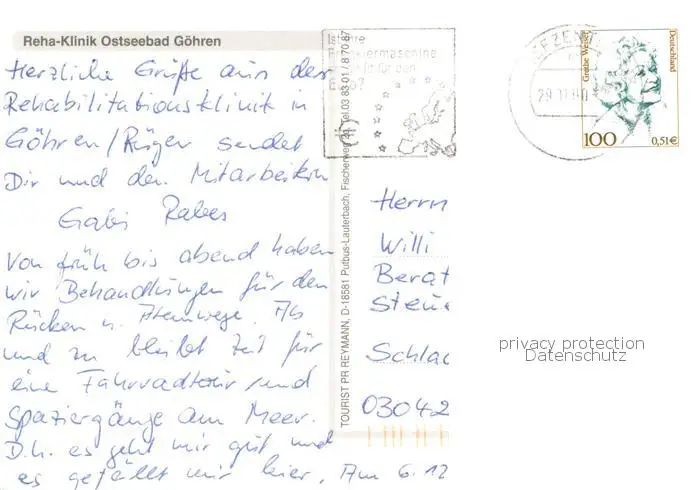 Reha-Klinik Ostseebad Göhren
Herzliche Grüße aus der
Rehabilitationsklinik in
Göhren/Rügen sendet
Dir und den Mitarbeitern
Gabi Rabes
Von früh bis abend haben
wir Behandlungen für den
Rücken u. Atemwege. Ab
und zu bleibt Zeit für
eine Fahrradtour und
Spaziergänge am Meer.
D.h. es geht mir gut und
es gefällt mir hier. Am 6.12
TOURIST PR REYMANN, D-18581 Putbus-Lauterbach, Fischerweg Tel. 03 83 01 / 8 70 87
Ist Ihre
Frankiermaschine
fit für den
Euro?
BRIEFZENTRUM
Grethe Weiser
Deutschland
100
0,51€
Herrn
Willi
Berat
Steue
Schlac
03042
privacy protection
Datenschutz